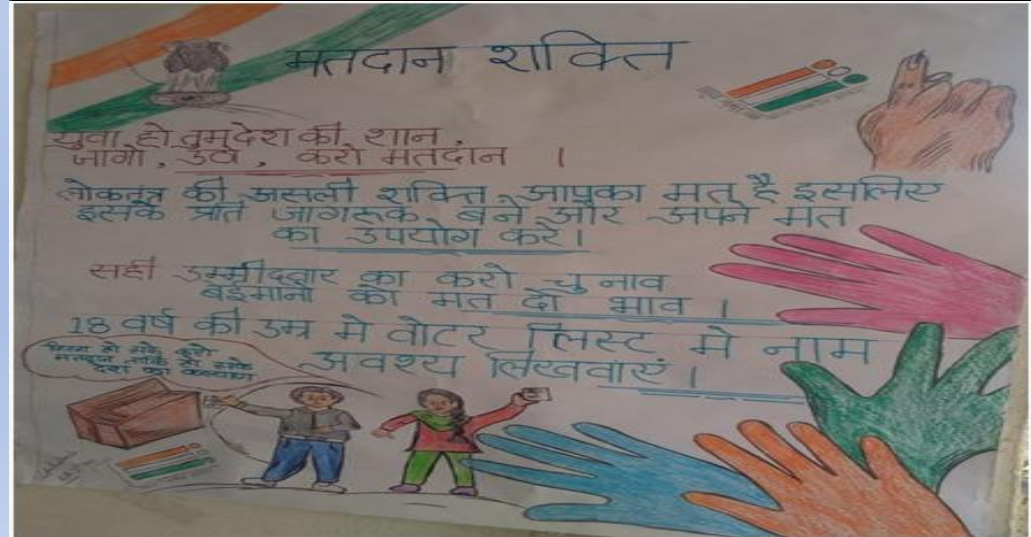 मतदान शक्ति
युवा हो तुम देश की शान,
जागो, उठो, करो मतदान ।
लोकतंत्र की असली शक्ति, आपका मत है इसलिए
इसके प्रति जागरूक बने और अपने मत
का उपयोग करें।
सही उम्मीदवार का करो चुनाव
बेईमानो को मत दो भाव ।
18 वर्ष की उम्र मे वोटर लिस्ट मे नाम
अवश्य लिखवाएं ।
करो
मतदान ताकि हो सके
देश का कल्याण